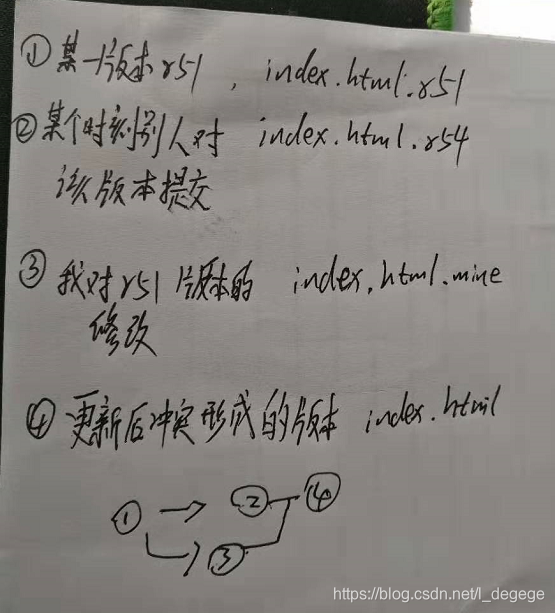 ① 某一版本r51 , index.html.r51
② 某个时刻别人对 index.html.r54
该版本提交
③ 我对r51版本的 index.html.mine
修改
④ 更新后冲突形成的版本 index.html
① → ② ④
③
https://blog.csdn.net/l_degege